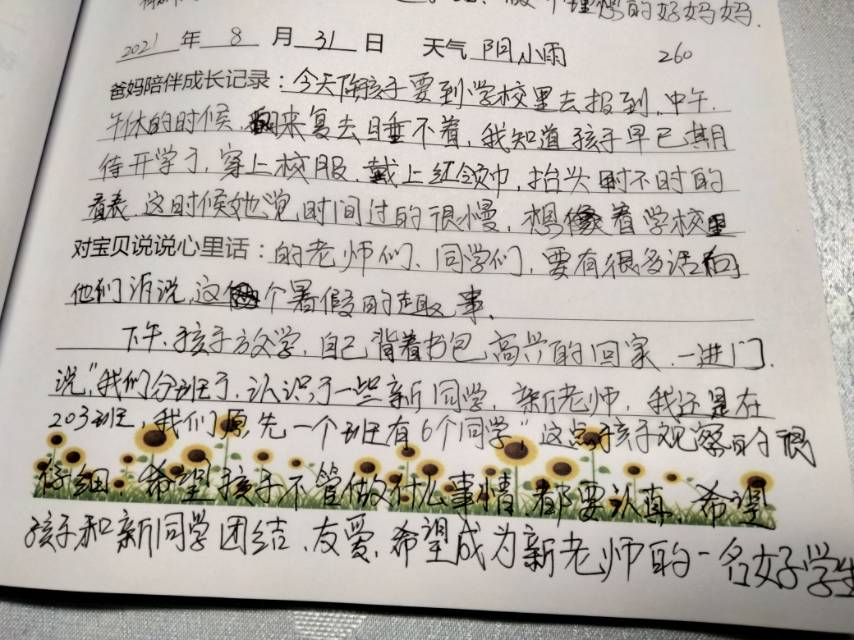 做个理想的好妈妈.
2021 年 8 月 31 日 天气 阴,小雨 260
爸妈陪伴成长记录:今天陪孩子要到学校里去报到,中午,
午休的时候,翻来复去睡不着,我知道孩子早已期
待开学了,穿上校服,戴上红领巾,抬头时不时的
看表,这时候她说时间过的很慢,想像着学校里
对宝贝说说心里话:的老师们、同学们,要有很多话向
他们诉说,这个暑假的趣事.
下午,孩子放学,自己背着书包,高兴的回家,一进门,
说,"我们分班了,认识了一些新同学,新老师,我还是在
203班,我们原先一个班有6个同学",这点孩子观察的很
仔细,希望孩子不管做什么事情都要认真,希望
孩子和新同学团结、友爱,希望成为新老师的一名好学生